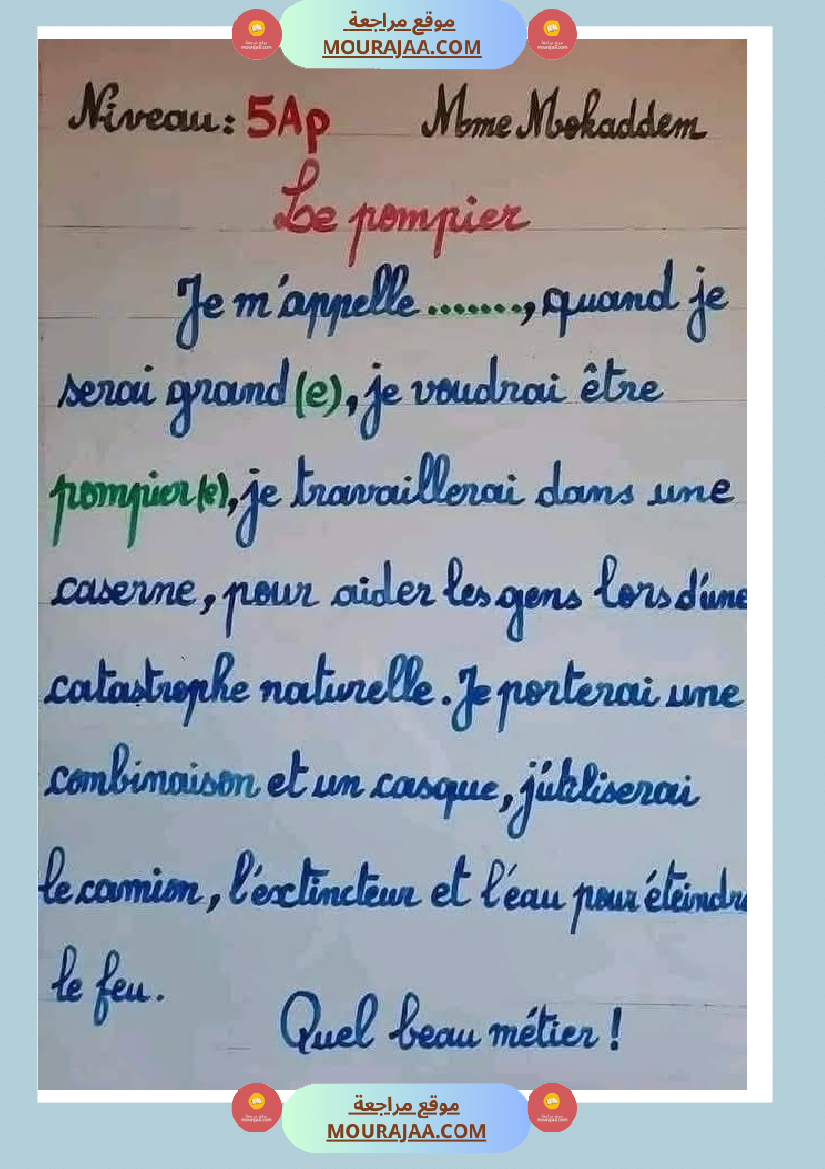 موقع مراجعة
MOURAJAA.COM
Niveau: 5Ap Mme Mokaddem
Le pompier
Je m'appelle ......., quand je
serai grand(e), je voudrai être
pompier(e), je travaillerai dans une
caserne, pour aider les gens lors d'une
catastrophe naturelle. Je porterai une
combinaison et un casque, j'utiliserai
le camion, l'extincteur et l'eau pour éteindre
le feu.
Quel beau métier !
موقع مراجعة
MOURAJAA.COM